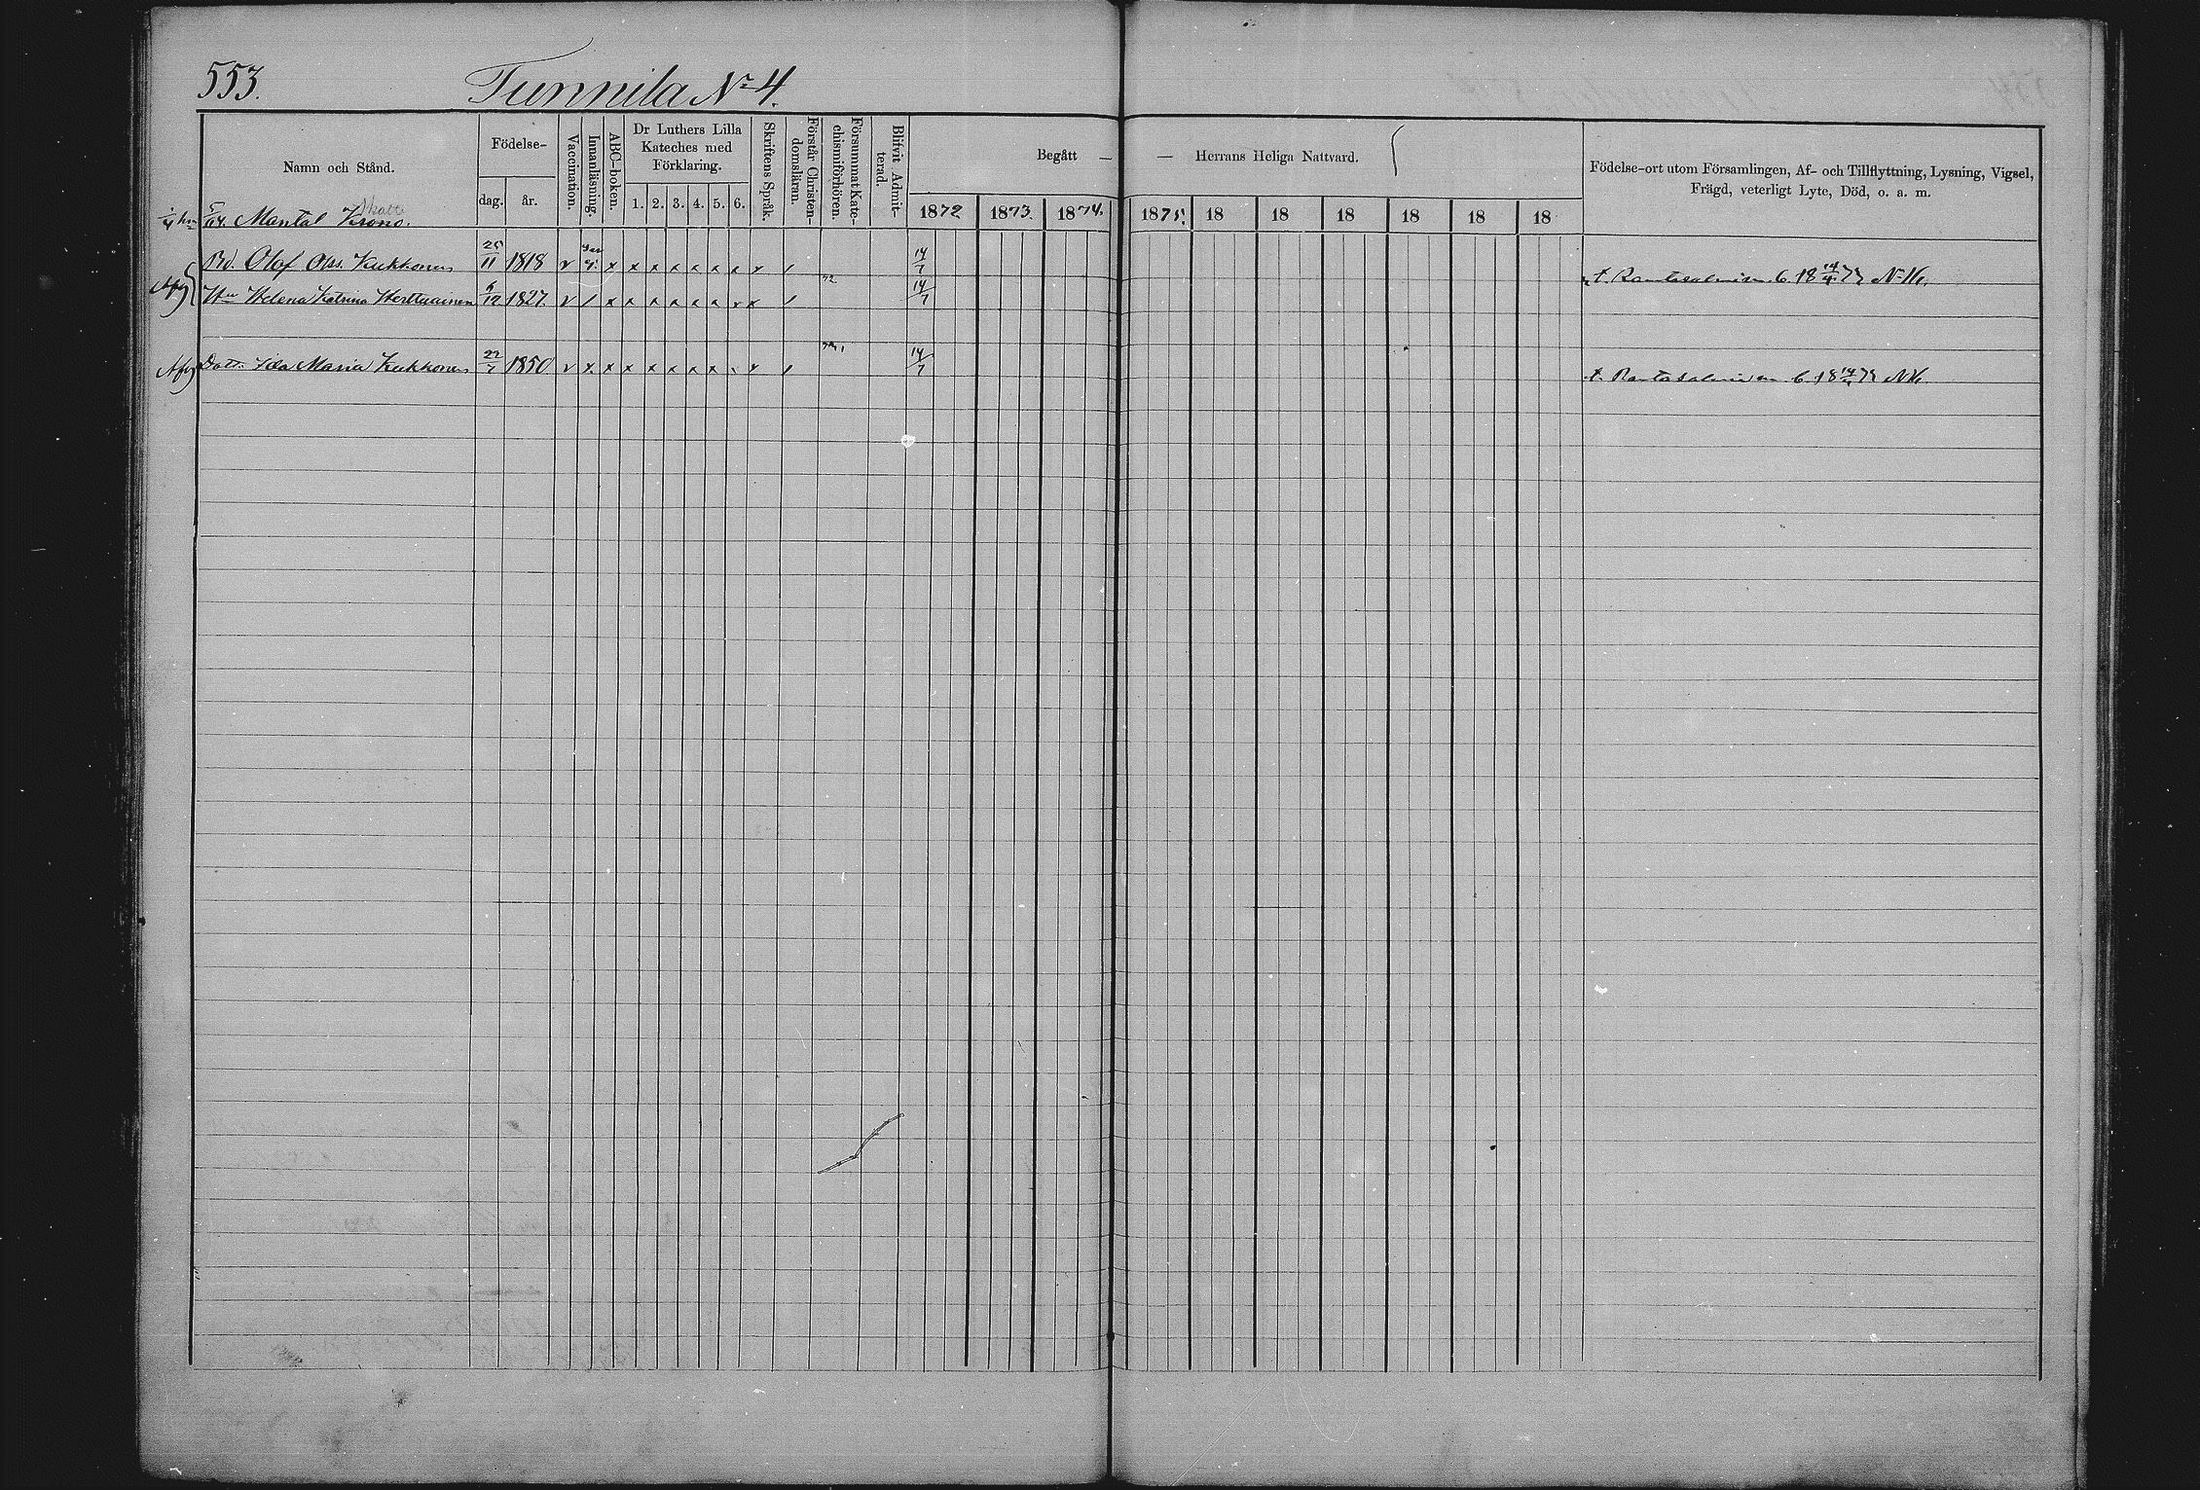 553.
Tunnila No 4.
Namn och Stånd.
Födelse-
dag.
år.
Vaccination.
Innanläsning.
ABC-boken.
Dr Luthers Lilla
Kateches med
Förklaring.
1. 2. 3. 4. 5. 6.
Skriftens Språk.
Förstår Christen-
domsläran.
Försummat Kate-
chismiförhören.
Blifvit Admit-
terad.
Begått — — Herrans Heliga Nattvard.
1872 1873. 1874. 1875. 18 18 18 18 18 18
Födelse-ort utom Församlingen, Af- och Tillflyttning, Lysning, Vigsel,
Frägd, veterligt Lyte, Död, o. a. m.
Mantal Krono.
Skatte
Bd. Olof Kukkonen 25/11 1818 v x x x x x x x x / 14/7
Hu Helena Katrina Herttuainen 6/12 1827. v / x x x x x x v x / 72 14/7
t. Rantasalmi
Dottr. Maria Kukkonen 22/7 1850 v x x x x x x x / 14/7
t. Rantasalmi